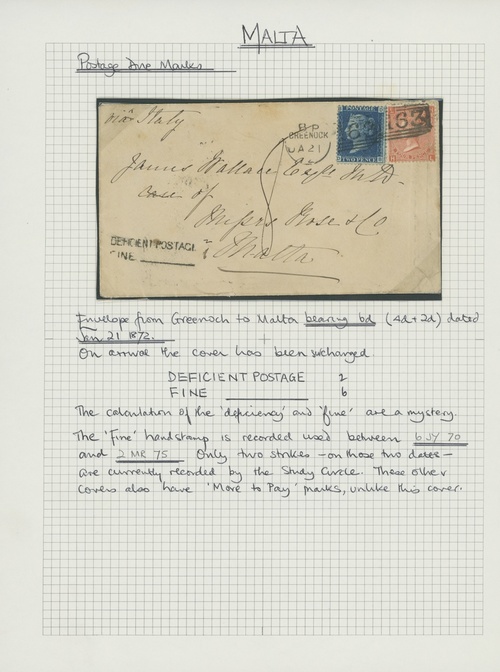 MALTA
Postage Due Marks
via Italy
BP
GREENOCK
JA 21
163
POSTAGE
TWO PENCE
James Wallace Esqre M.D.
care of
Messrs Rose & Co
Malta
DEFICIENT POSTAGE 2
FINE 6
Envelope from Greenock to Malta bearing 6d (4d + 2d) dated
Jan 21 1872.
On arrival the cover has been surcharged
DEFICIENT POSTAGE 2
FINE 6
The calculation of the 'deficiency' and 'fine' are a mystery.
The 'Fine' handstamp is recorded used between 6 JY 70
and 2 MR 75 Only two strikes - on those two dates -
are currently recorded by the Study Circle. These other
covers also have 'More to Pay' marks, unlike this cover.